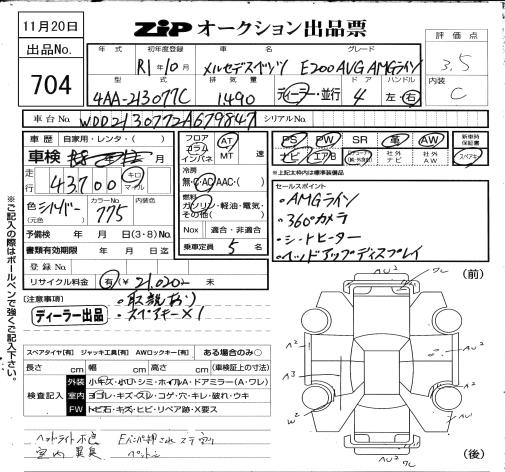 11月20日
ZiPオークション出品票
出品No.
704
評価点
3.5
内装
C
年式 初年度登録 車名 グレード
R1年10月 メルセデスベンツ E200 AVG AMGライン
型式 排気量 ドア ハンドル
4AA-213077C 1490 ディーラー・並行 4 左・右
車台No. WDD2130772A679847 シリアルNo.
車歴 自家用・レンタ・( )
車検 年 月
走行 43,700 キロ マイル
色 シルバー カラーNo. 775 内装色
(元色)
予備検 年 月 日(3・8)No.
書類有効期限 年 月 日
登録No.
リサイクル料金 有(¥ 21,020 ) 未
フロア コラム インパネ AT MT 速
冷房 無・C・AC・AAC・( )
燃料 ガソリン・軽油・電気・その他( )
Nox 適合・非適合
乗車定員 5 名
PS PW SR 革 AW
ナビ エアB 社外ナビ 社外AW
新車時保証書
スペアキー
※上記太枠内は標準装備品
セールスポイント
・AMGライン
・360°カメラ
・シートヒーター
・ヘッドアップディスプレイ
注意事項
・取説あり
・スペアキー×1
ディーラー出品
スペアタイヤ[有] ジャッキ工具[有] AWロックキー[有] ある場合のみ○
長さ cm 幅 cm 高さ cm (車検証上の寸法)
検査記入
外装 小キズ・小凹・シミ・ホイルA・ドアミラー(A・ワレ)
室内 ヨゴレ・キズ・スレ・コゲ・穴・キレ・破れ・ウキ
FW トビ石・キズ・ヒビ・リペア跡・X要ス
ヘッドライト不良 Eバンパー押され ステ切り
室内異臭
※ご記入の際はボールペンで強くご記入下さい。
(前)
(後)
AU2
ワレ
A2
A3
W2
A2
AU2
AU2
ワレ